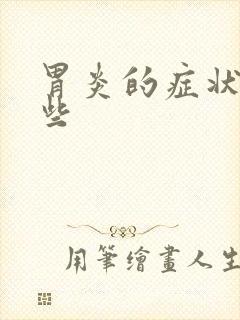 胃炎的症状
些
用筆繪畫人生